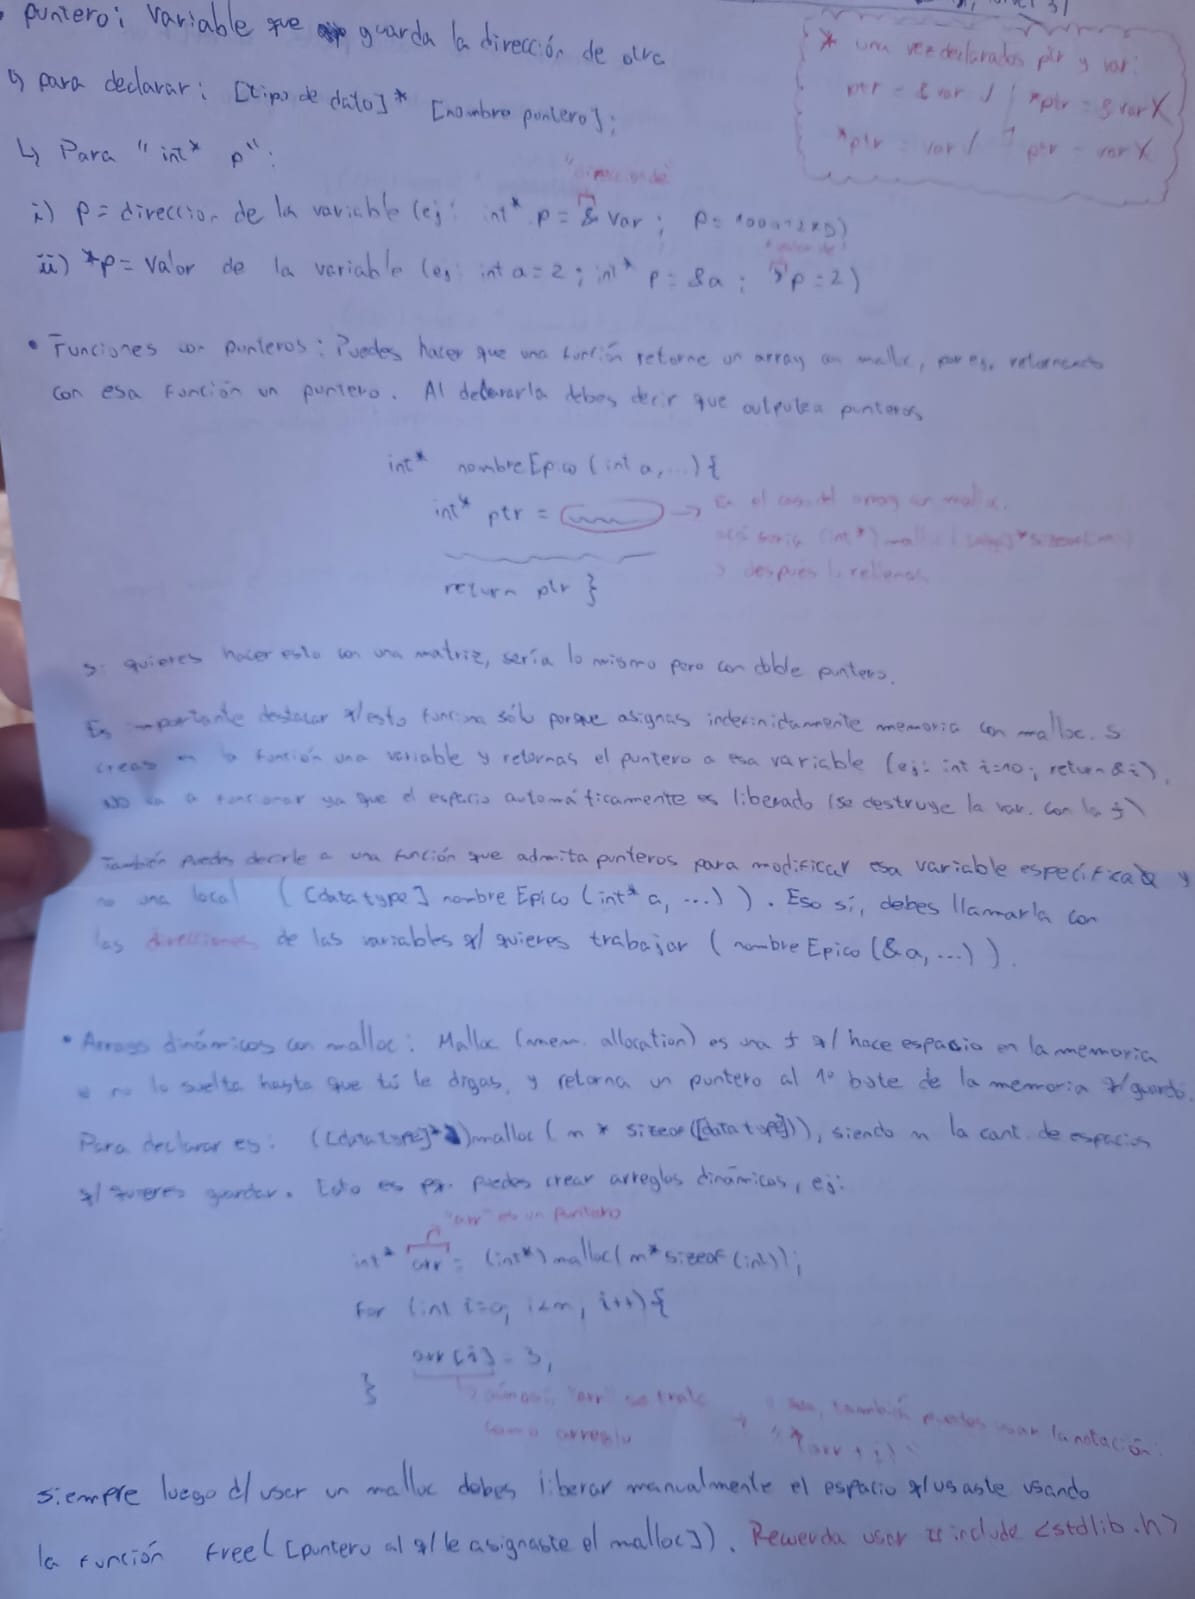 • puntero: variable que guarda la dirección de otra
↳ para declarar: [tipo de dato]* [nombre puntero];
↳ Para "int* p":
* una vez declarados ptr y var:
ptr = &var ✓ / *ptr = &var X
*ptr = var ✓ / ptr = var X
"dirección de"
i) p = direccion de la variable (ej: int* p = & var; p=
"valor de"
ii) *p = valor de la variable (ej: int a = 2; int* p = &a; *p = 2)
• Funciones con punteros: Puedes hacer que una función retorne un array con malloc, por ej, retornando
con esa función un puntero. Al declararla debes decir que outputea punteros
int* nombreEpico (int a, ...) {
int* ptr = → En el caso del array con malloc,
acá sería (int*) malloc( *sizeof(int))
y después lo rellenas
return ptr }
Si quieres hacer esto con una matriz, sería lo mismo pero con doble puntero.
Es importante destacar q/esto funciona sólo porque asignas indefinidamente memoria con malloc. Si
creas en la función una variable y retornas el puntero a esa variable (ej: int i=10; return &i),
NO va a funcionar ya que el espacio automáticamente es liberado (se destruye la var. con la f)
También puedes decirle a una función que admita punteros para modificar esa variable específica y
no una local ([data type] nombre Epico (int* a, ...)). Eso sí, debes llamarla con
las direcciones de las variables q/ quieres trabajar (nombre Epico (&a, ...)).
• Arrays dinámicos con malloc: Malloc (mem. allocation) es una f q/ hace espacio en la memoria
y no lo suelta hasta que tú le digas, y retorna un puntero al 1° byte de la memoria q/guardó.
Para declarar es: ([data type]*)malloc (m * sizeof([data type])), siendo m la cant. de espacios
q/ quieres guardar. Esto es pq. puedes crear arreglos dinámicos, ej:
"arr" es un puntero
int* arr = (int*) malloc( m* sizeof (int));
for (int i=0; i<m; i++){
arr[i] = 3;
}
↳ aún así, "arr" se trata
como arreglo
→ también puedes usar la notación:
"*(arr + i)"
siempre luego d/ usar un malloc debes liberar manualmente el espacio q/usaste usando
la función free( [puntero al q/ le asignaste el malloc]). Recuerda usar #include <stdlib.h>